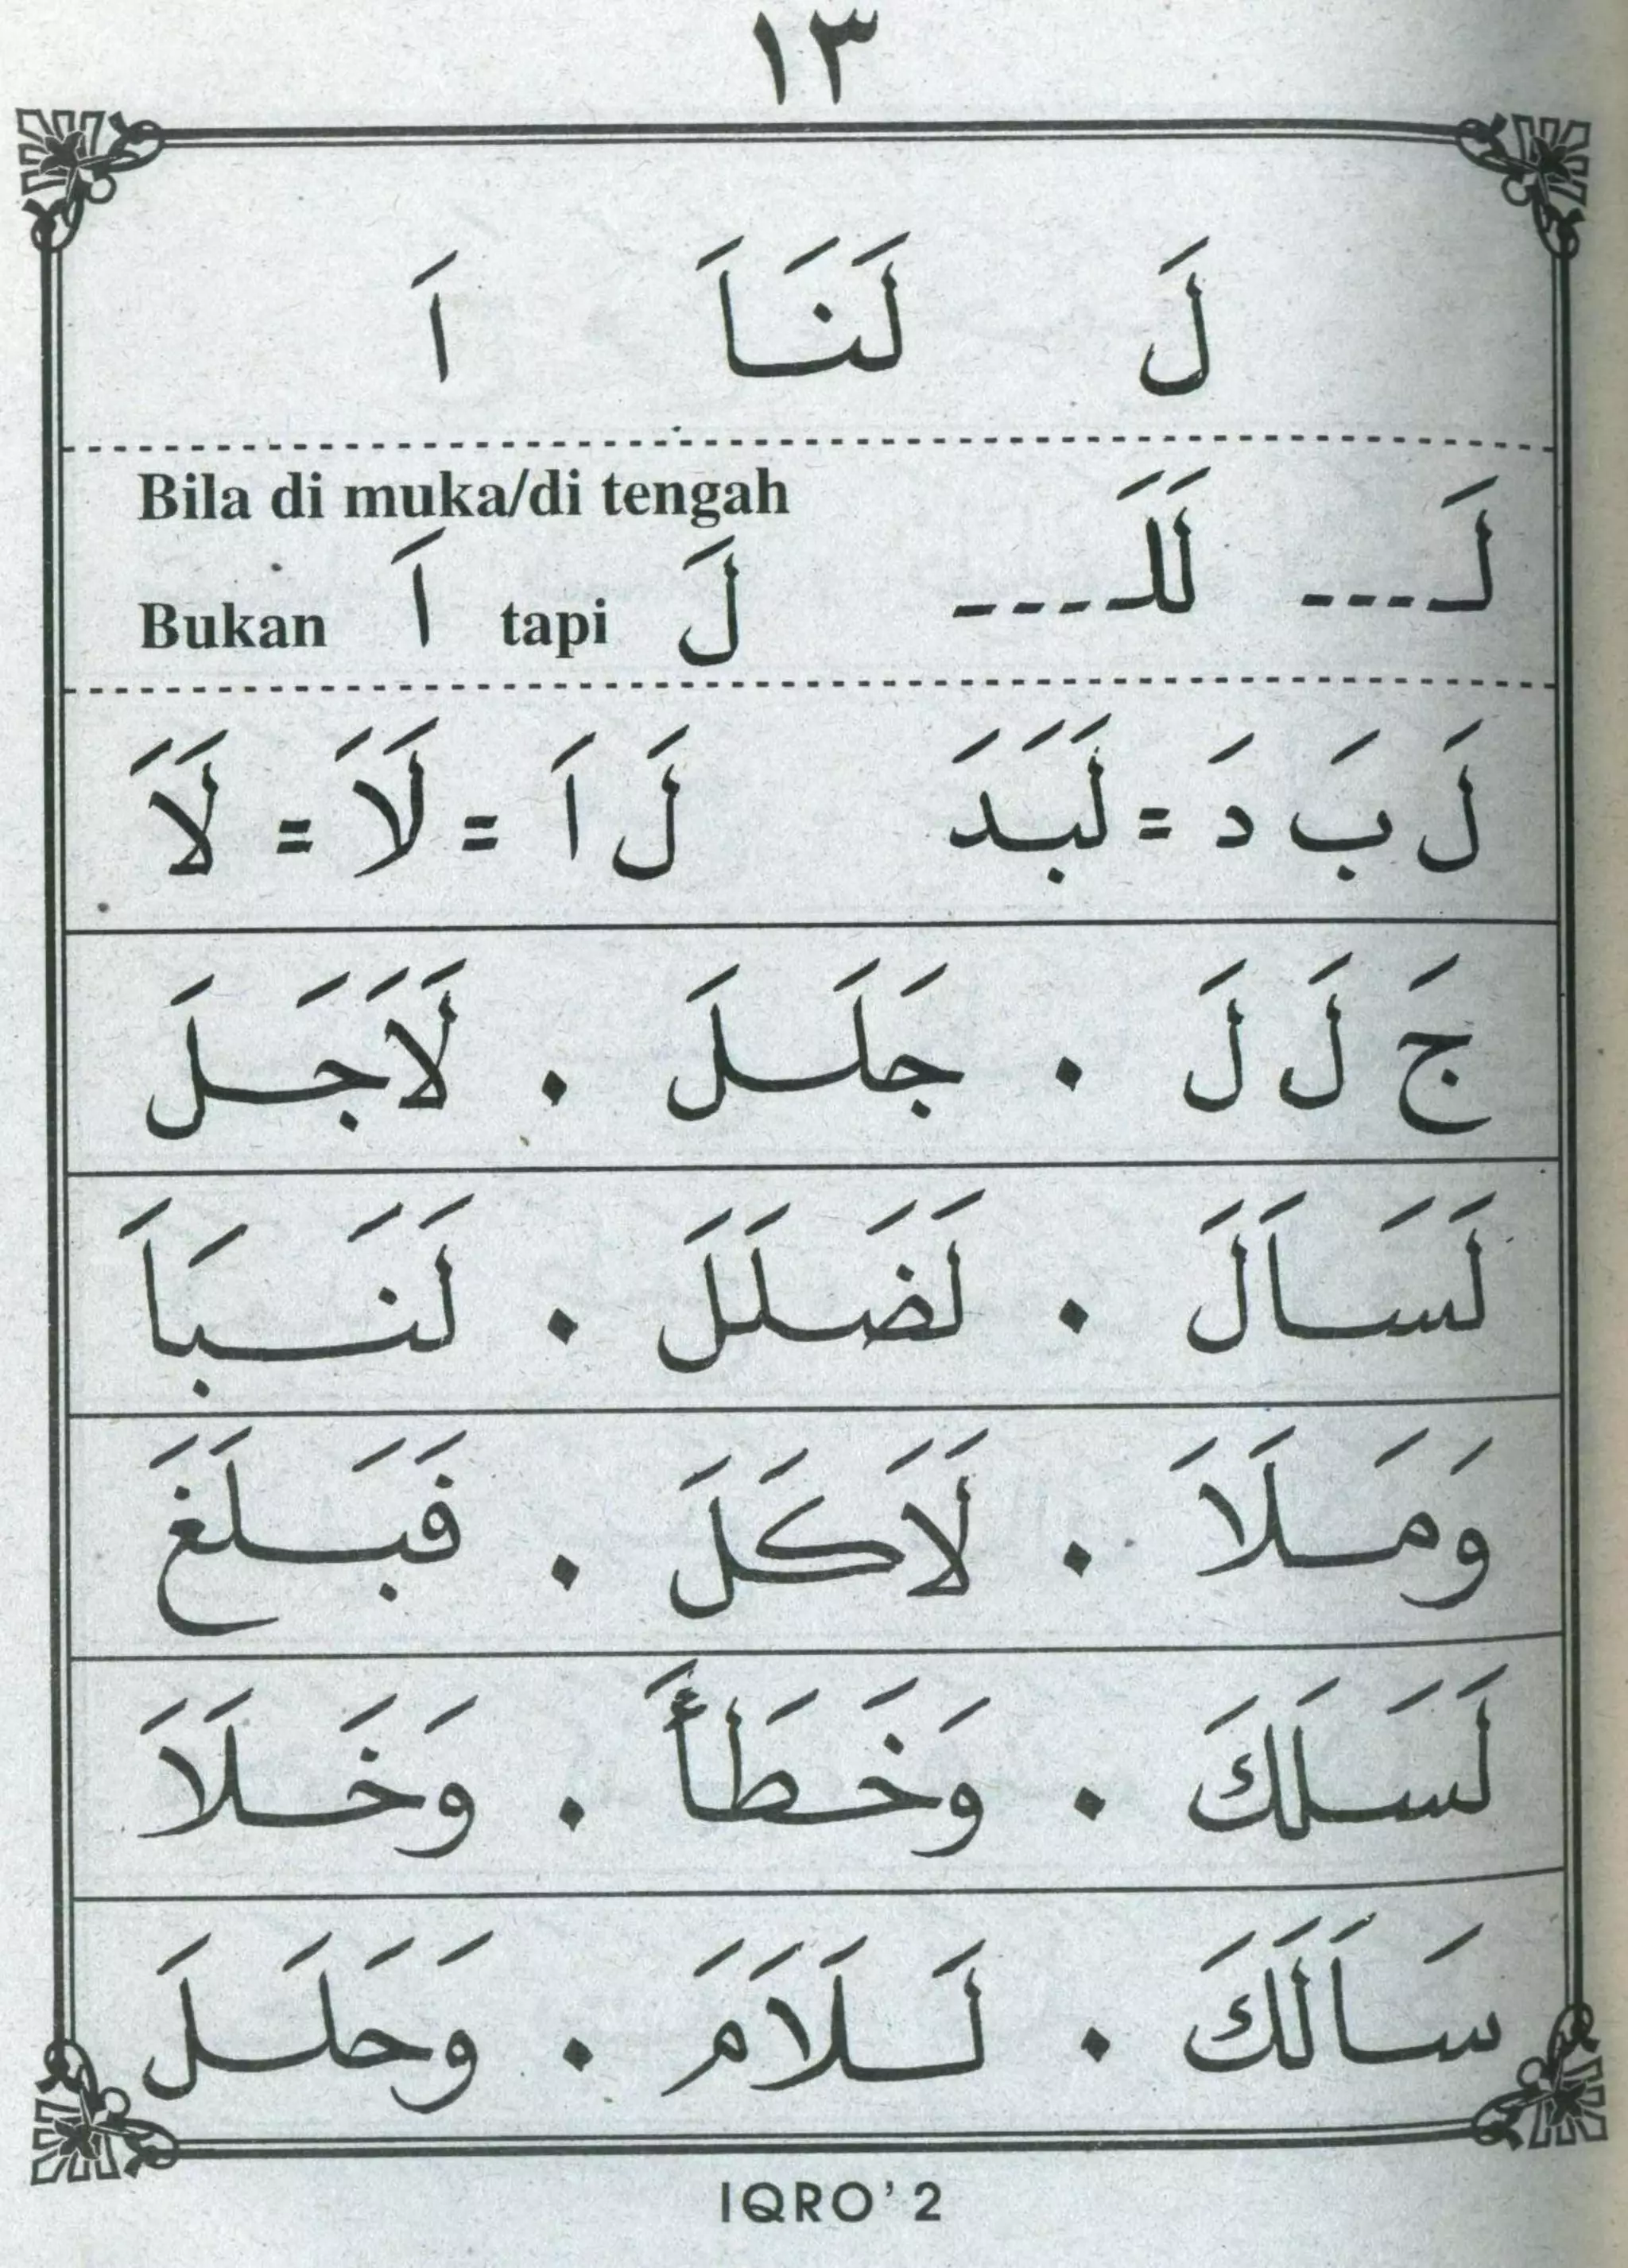 ١٣
لَ لَنَاَ اَ
لَـ --- لَلَـ ---- Bila di muka/di tengah
Bukan اَ tapi لَ
لَ بَ دَ = لَبَدَ لَ اَ = لَاَ = لَاَ
جَ لَ لَ . جَلَلَ . لَاَجَلَ
لَسَاَلَ . لَضَلَلَ . لَنَبَاَ
وَمَلَاَ . لَاَكَلَ . فَبَلَغَ
لَسَلَكَ . وَخَطَأَ . وَخَلَاَ
سَاَلَكَ . لَلَاَمَ . وَحَلَلَ
IQRO' 2